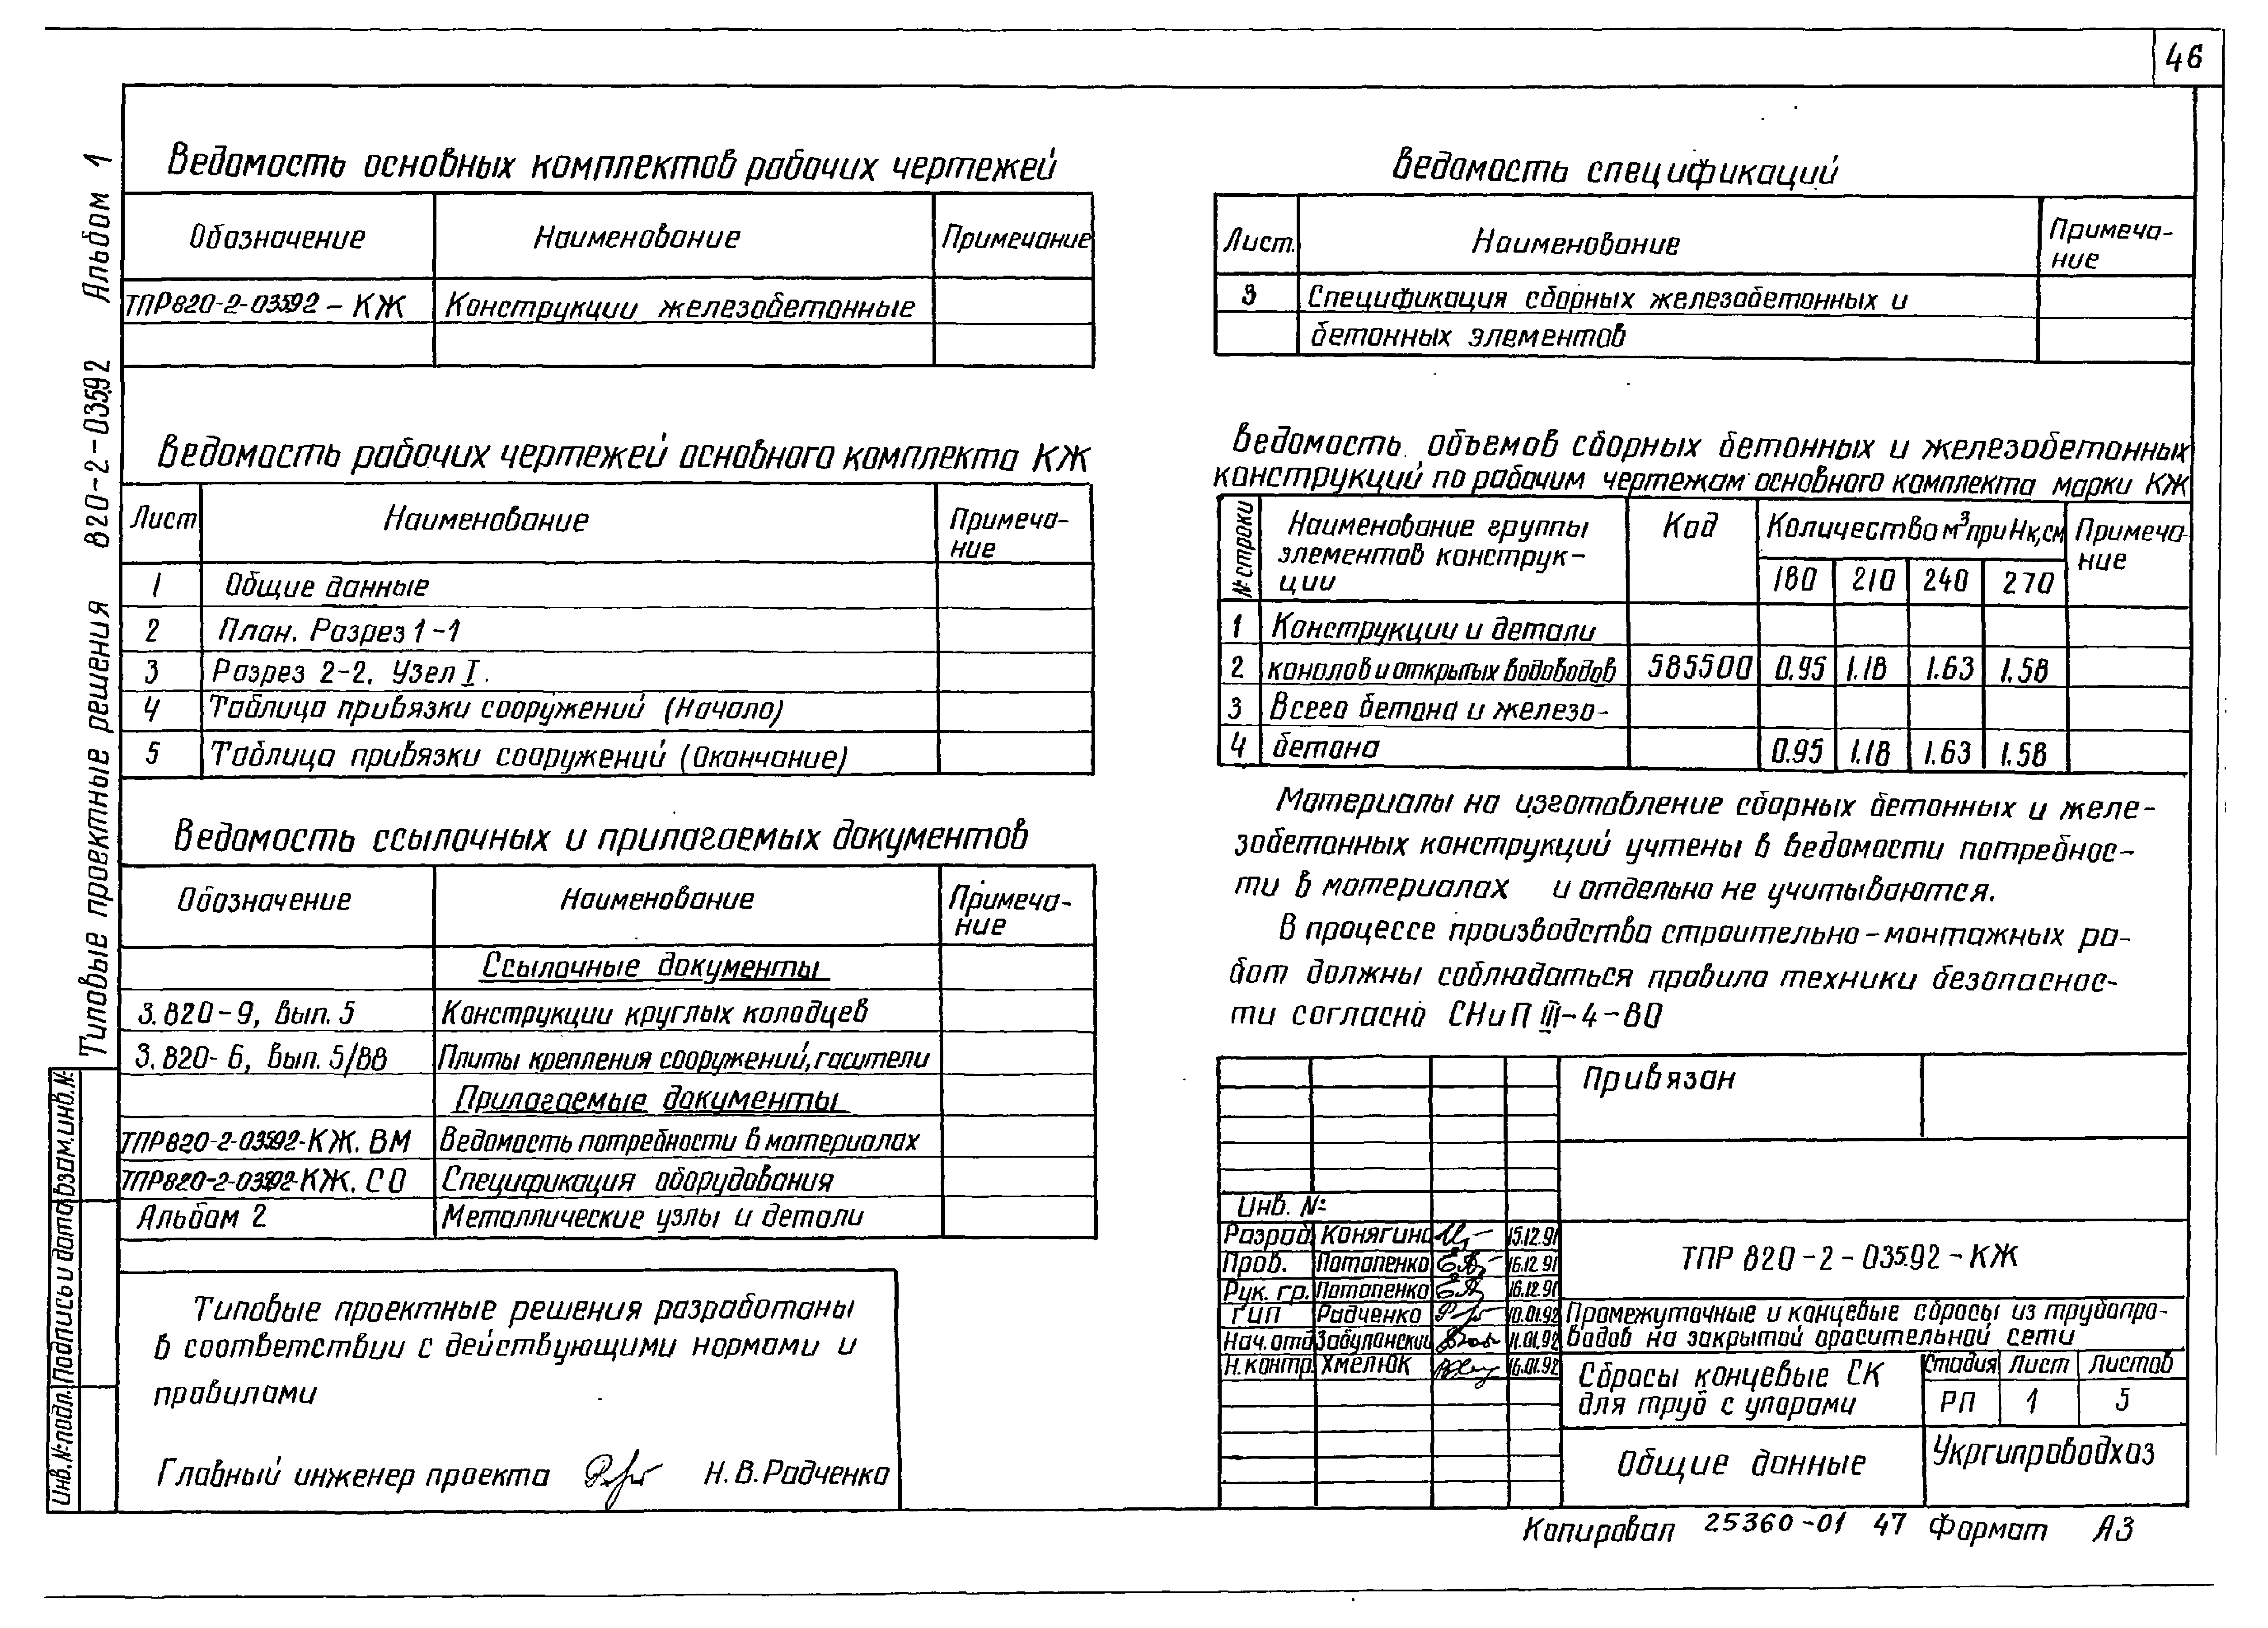 46
Альбом 1
820-2-035.92
Типовые проектные решения
Взам.инв.№
Подпись и дата
Инв.№подл.
Ведомость основных комплектов рабочих чертежей
Обозначение Наименование Примечание
ТПР820-2-035.92-КЖ Конструкции железобетонные
Ведомость рабочих чертежей основного комплекта КЖ
Лист Наименование Примеча-
ние
1 Общие данные
2 План. Разрез 1-1
3 Разрез 2-2. Узел I.
4 Таблица привязки сооружений (Начало)
5 Таблица привязки сооружений (Окончание)
Ведомость ссылочных и прилагаемых документов
Обозначение Наименование Примеча-
ние
Ссылочные документы
3.820-9, вып. 5 Конструкции круглых колодцев
3.820-6, вып. 5/88 Плиты крепления сооружений, гасители
Прилагаемые документы
ТПР820-2-035.92-КЖ. ВМ Ведомость потребности в материалах
ТПР820-2-035.92-КЖ. СО Спецификация оборудования
Альбом 2 Металлические узлы и детали
Типовые проектные решения разработаны
в соответствии с действующими нормами и
правилами
Главный инженер проекта Н.В.Радченко
Ведомость спецификаций
Лист. Наименование Примеча-
ние
3 Спецификация сборных железобетонных и
бетонных элементов
Ведомость объемов сборных бетонных и железобетонных
конструкций по рабочим чертежам основного комплекта марки КЖ
№ строки Наименование группы Код Количество м³ при Нк, см Примеча-
элементов конструк- ние
ции 180 210 240 270
1 Конструкции и детали
2 каналов и открытых водоводов 585500 0.95 1.18 1.63 1.58
3 Всего бетона и железо-
4 бетона 0.95 1.18 1.63 1.58
Материалы на изготовление сборных бетонных и желе-
зобетонных конструкций учтены в ведомости потребнос-
ти в материалах и отдельно не учитываются.
В процессе производства строительно-монтажных ра-
бот должны соблюдаться правила техники безопаснос-
ти согласно СНиП III-4-80
Привязан
Инв. №
Разраб. Конягина 15.12.91
Пров. Потапенко 16.12.91
Рук. гр. Потапенко 16.12.91
ГИП Радченко 10.01.92
Нач.отд Забулонский 11.01.92
Н.контр. Хмелюк 16.01.92
ТПР 820-2-035.92-КЖ
Промежуточные и концевые сбросы из трубопро-
водов на закрытой оросительной сети
Сбросы концевые СК
для труб с упорами
Стадия Лист Листов
РП 1 5
Общие данные
Укргипроводхоз
Копировал 25360-01 47 Формат А3